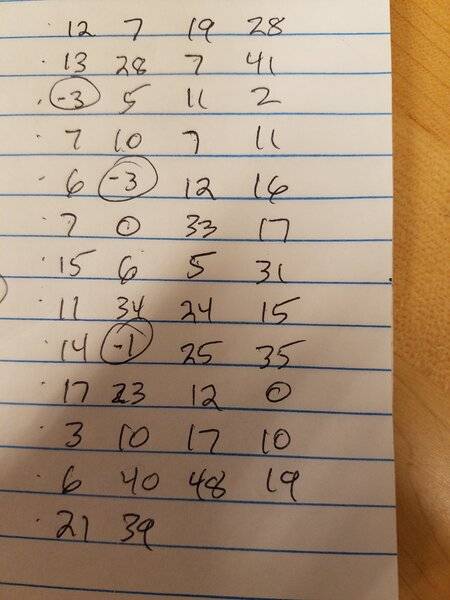 12 7 19 28
13 28 7 41
-3 5 11 2
7 10 7 11
6 -3 12 16
7 0 33 17
15 6 5 31
11 34 24 15
14 -1 25 35
17 23 12 0
3 10 17 10
6 40 48 19
21 39